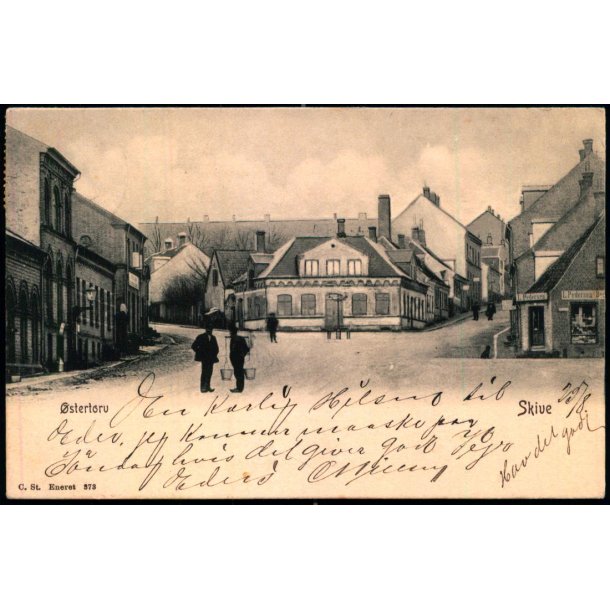 Pedersen
L. Pedersen
Østertorv
Skive
En Kærlig Hilsen til
Eder, jeg kommer maaske paa
Søndag hvis det giver godt Vejr
Eders
Hav det godt
C. St. Eneret 373